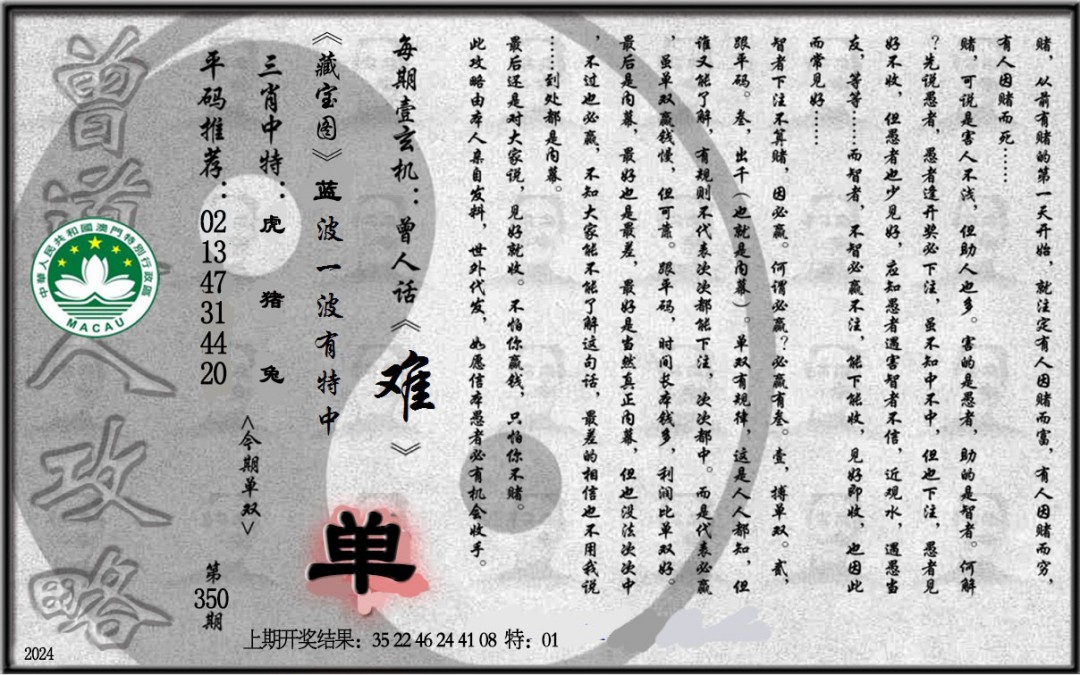 赌，从前有赌的第一天开始，就注定有人因赌而富，有人因赌而穷，
有人因赌而死……
赌，可说是害人不浅，但助人也多。害的是愚者，助的是智者。何解
？先说愚者，愚者逢开奖必下注，虽不知中不中，但也下注，愚者见
好不收，但愚者也少见好，应知愚者遇害智者不信，近观水，遇愚当
友，等等……而智者，不智必赢不注，能下能收，见好即收，也因此
而常见好……
智者下注不算赌，因必赢。何谓必赢？必赢有叁。壹，搏单双。贰，
跟平码。叁，出千（也就是内幕）。单双有规律，这是人人都知，但
谁又能了解，有规则不代表次次都能下注，次次都中。而是代表必赢
，虽单双赢钱慢，但可靠。跟平码，时间长本钱多，利润比单双好。
最后是内幕，最好也是最差，最好是当然真正内幕，但也没法次次中
，不过也必赢，不知大家能不能了解这句话，最差的相信也不用我说
……到处都是内幕。
最后还是对大家说，见好就收。不怕你赢钱，只怕你不赌。
此攻略由本人亲自发料，世外代发，如愿信本愚者必有机会收手。
每期壹玄机：曾人话《难》
《藏宝图》蓝波一波有特中
单
三肖中特：虎 猪 兔
<今期单双>
平码推荐：02 13 47 31 44 20
第350期
曾道人攻略
中華人民共和國澳門特別行政區
MACAU
上期开奖结果：35 22 46 24 41 08 特：01
2024